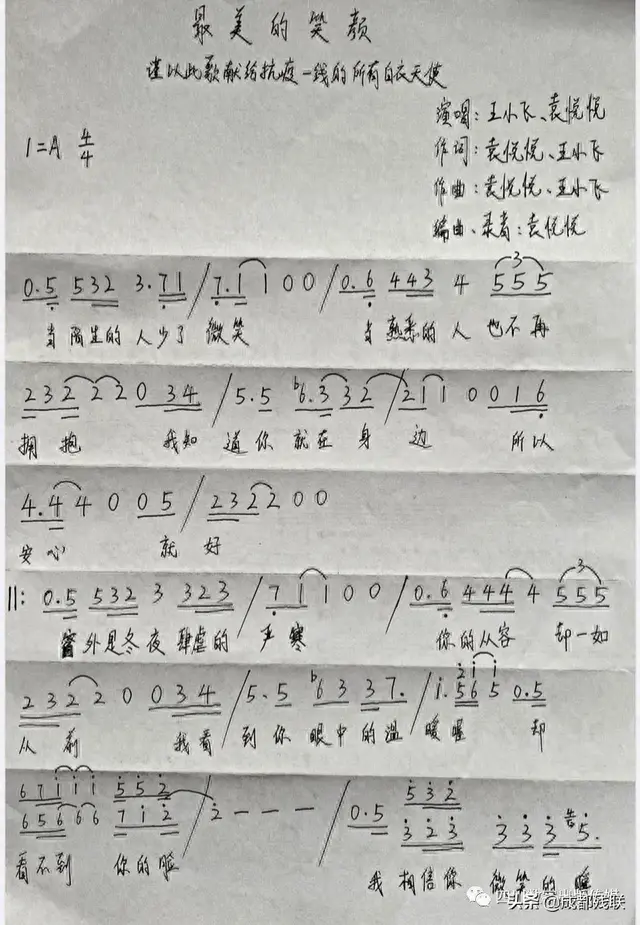 最美的笑颜
谨以此歌献给抗疫一线的所有白衣天使
演唱：王小飞、袁悦悦
1=A 4/4
作词：袁悦悦、王小飞
作曲：袁悦悦、王小飞
编曲、录音：袁悦悦
0.5 532 3.71 / 7.1 1 0 0 / 0.6 443 4 555
当陌生的人少了微笑 当熟悉的人也不再
232 2 2 0 34 / 5.5 b6.3 32 / 211 0 0 16
拥抱 我知道你就在身边 所以
4.4 4 0 05 / 232 2 0 0
安心 就好
‖: 0.5 532 3 323 / 7 1 1 0 0 / 0.6 444 4 555
窗外是冬夜肆虐的严寒 你的从容 却一如
232 2 0 034 / 5.5 b6 3 37. / 1.565 0.5
2 1 1
从前 我看到你眼中的温暖喔 却
671 1 1 552 / 2 - - - / 0.5 532
656 6 6 712 323 3 3 3 5.
看不到 你的脸 我相信你 微笑的脸
头条@成都残联